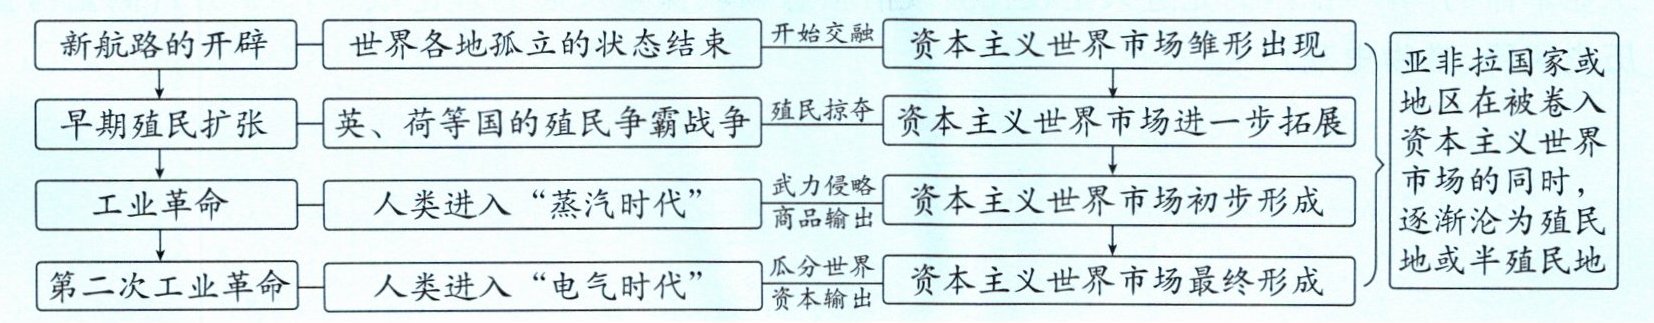 新航路的开辟
世界各地孤立的状态结束
开始交融
资本主义世界市场雏形出现
早期殖民扩张
英、荷等国的殖民争霸战争
殖民掠夺
资本主义世界市场进一步拓展
工业革命
人类进入“蒸汽时代”
武力侵略
商品输出
资本主义世界市场初步形成
第二次工业革命
人类进入“电气时代”
瓜分世界
资本输出
资本主义世界市场最终形成
亚非拉国家或
地区在被卷入
资本主义世界
市场的同时，
逐渐沦为殖民
地或半殖民地